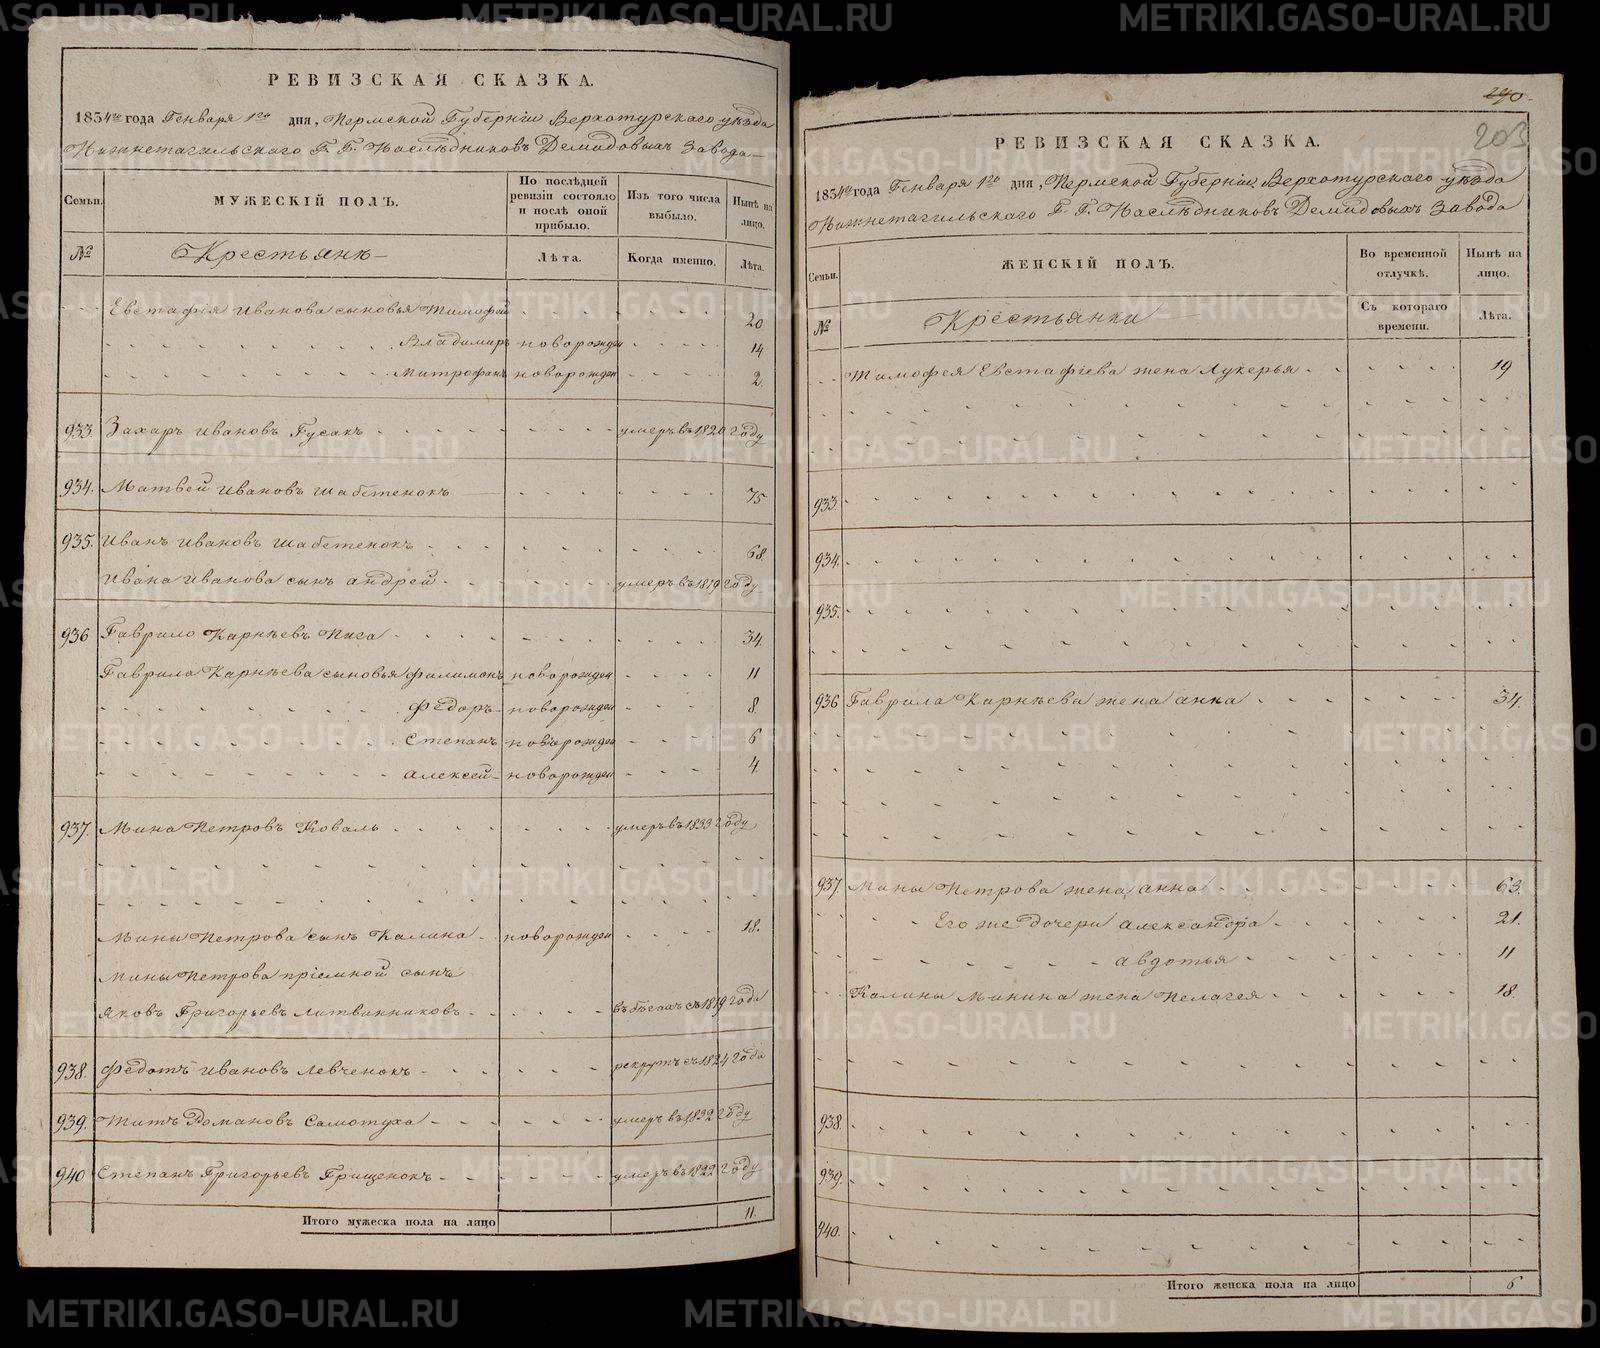 РЕВИЗСКАЯ СКАЗКА.
1834го года Генваря 1го дня, Пермской Губерніи Верхотурскаго уѣзда
Нижнетагильскаго Г. Г. Наслѣдниковъ Демидовыхъ Завода
Семьи. МУЖЕСКІЙ ПОЛЪ. По послѣдней ревизіи состояло и послѣ оной прибыло. Изъ того числа выбыло. Нынѣ на лицо.
№ Крестьянъ Лѣта. Когда именно. Лѣта.
Евстафія Иванова сыновья Тимофей 20
Владимиръ новорожден 14
Митрофанъ новорожден 2.
933. Захаръ Ивановъ Гусакъ умеръ въ 1820 году
934. Матвей Ивановъ Шабетенокъ 75
935. Иванъ Ивановъ Шабетенокъ 68
Ивана Иванова сынъ Андрей умеръ въ 1819 году
936 Гаврило Карнѣевъ Пига 34
Гаврила Карнѣева сыновья Филимонъ новорожден 11
Федоръ новорожден 8.
Степанъ новорожден 6
Алексей новорожден 4.
937. Мина Петровъ Коваль умеръ въ 1833 году
Мины Петрова сынъ Калина новорожден 18.
Мины Петрова пріемной сынъ
Яковъ Григорьевъ Литвинниковъ въ бегахъ съ 1819 года
938. Федотъ Ивановъ Левченокъ рекрутъ съ 1824 года
939. Титъ Романовъ Самотуха умеръ въ 1832 году
940 Степанъ Григорьевъ Грищенокъ умеръ въ 1822 году
Итого мужеска пола на лицо 11.
290.
203
РЕВИЗСКАЯ СКАЗКА.
1834го года Генваря 1го дня, Пермской Губерніи Верхотурскаго уѣзда
Нижнетагильскаго Г. Г. Наслѣдниковъ Демидовыхъ Завода
Семьи. ЖЕНСКІЙ ПОЛЪ. Во временной отлучкѣ. Нынѣ на лицо.
№ Крестьянки Съ котораго времени. Лѣта.
Тимофея Евстафіева жена Лукерья 19
933.
934.
935.
936 Гаврила Карнѣева жена Анна 34.
937. Мины Петрова жена Анна 63.
Его же дочери Александра 21.
Авдотья 11
Калины Минина жена Пелагея 18.
938.
939.
940.
Итого женска пола на лицо 6
METRIKI.GASO-URAL.RU